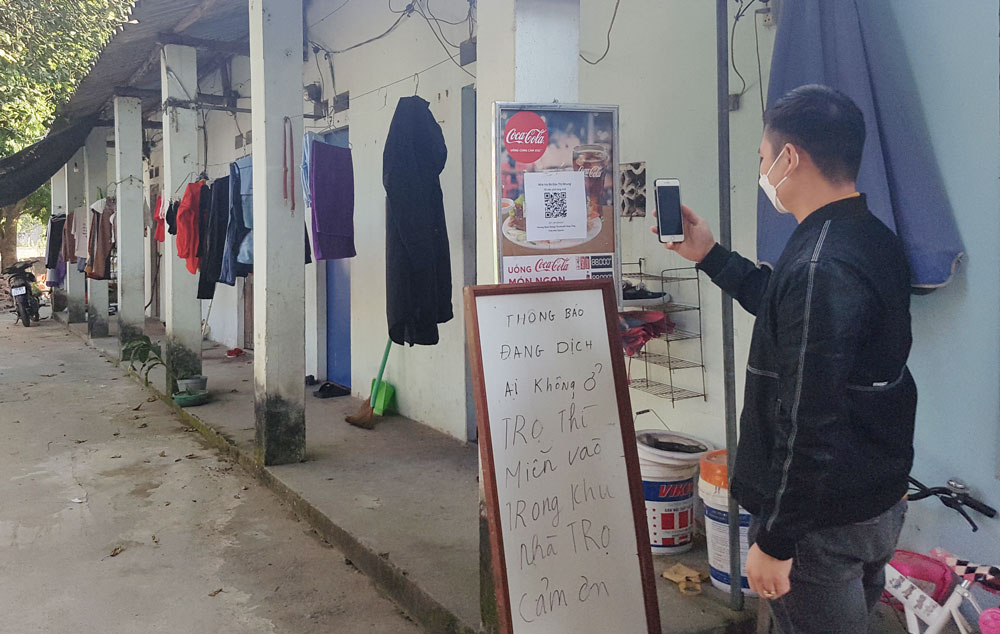 Coca-Cola
UỐNG Coca-Cola
MÓN NGON
88.000đ
88.000đ
THÔNG BÁO
ĐANG DỊCH
AI KHÔNG Ở
TRỌ THÌ
Miễn vào
TRONG KHU
nhà TRỌ
Cảm ơn